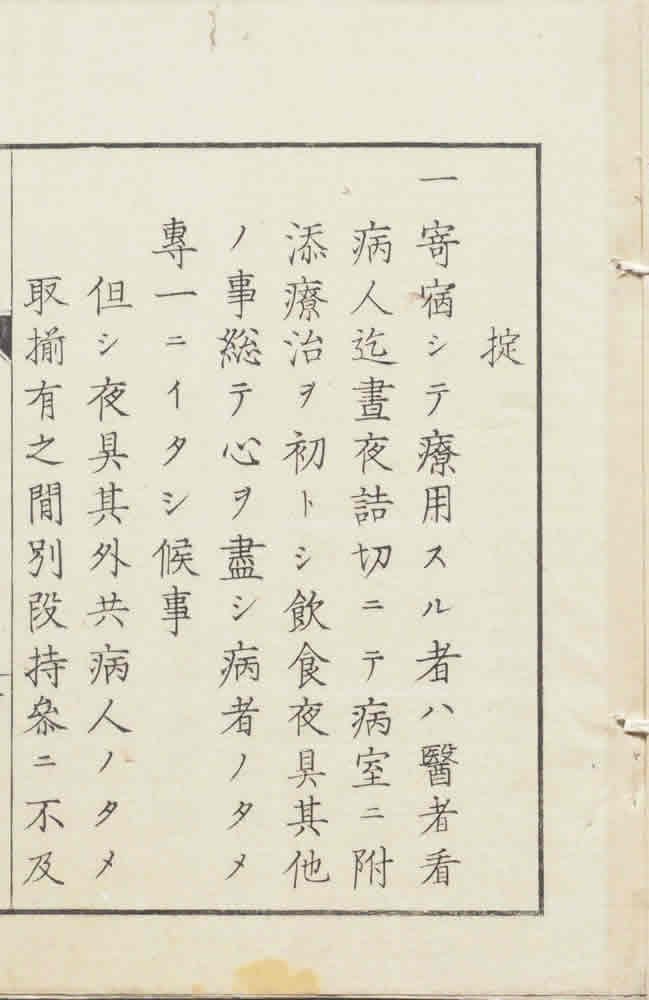 掟
一寄宿シテ療用スル者ハ醫者看
病人迄晝夜詰切ニテ病室ニ附
添療治ヲ初トシ飲食夜具其他
ノ事総テ心ヲ盡シ病者ノタメ
專一ニイタシ候事
但シ夜具其外共病人ノタメ
取揃有之間別段持參ニ不及